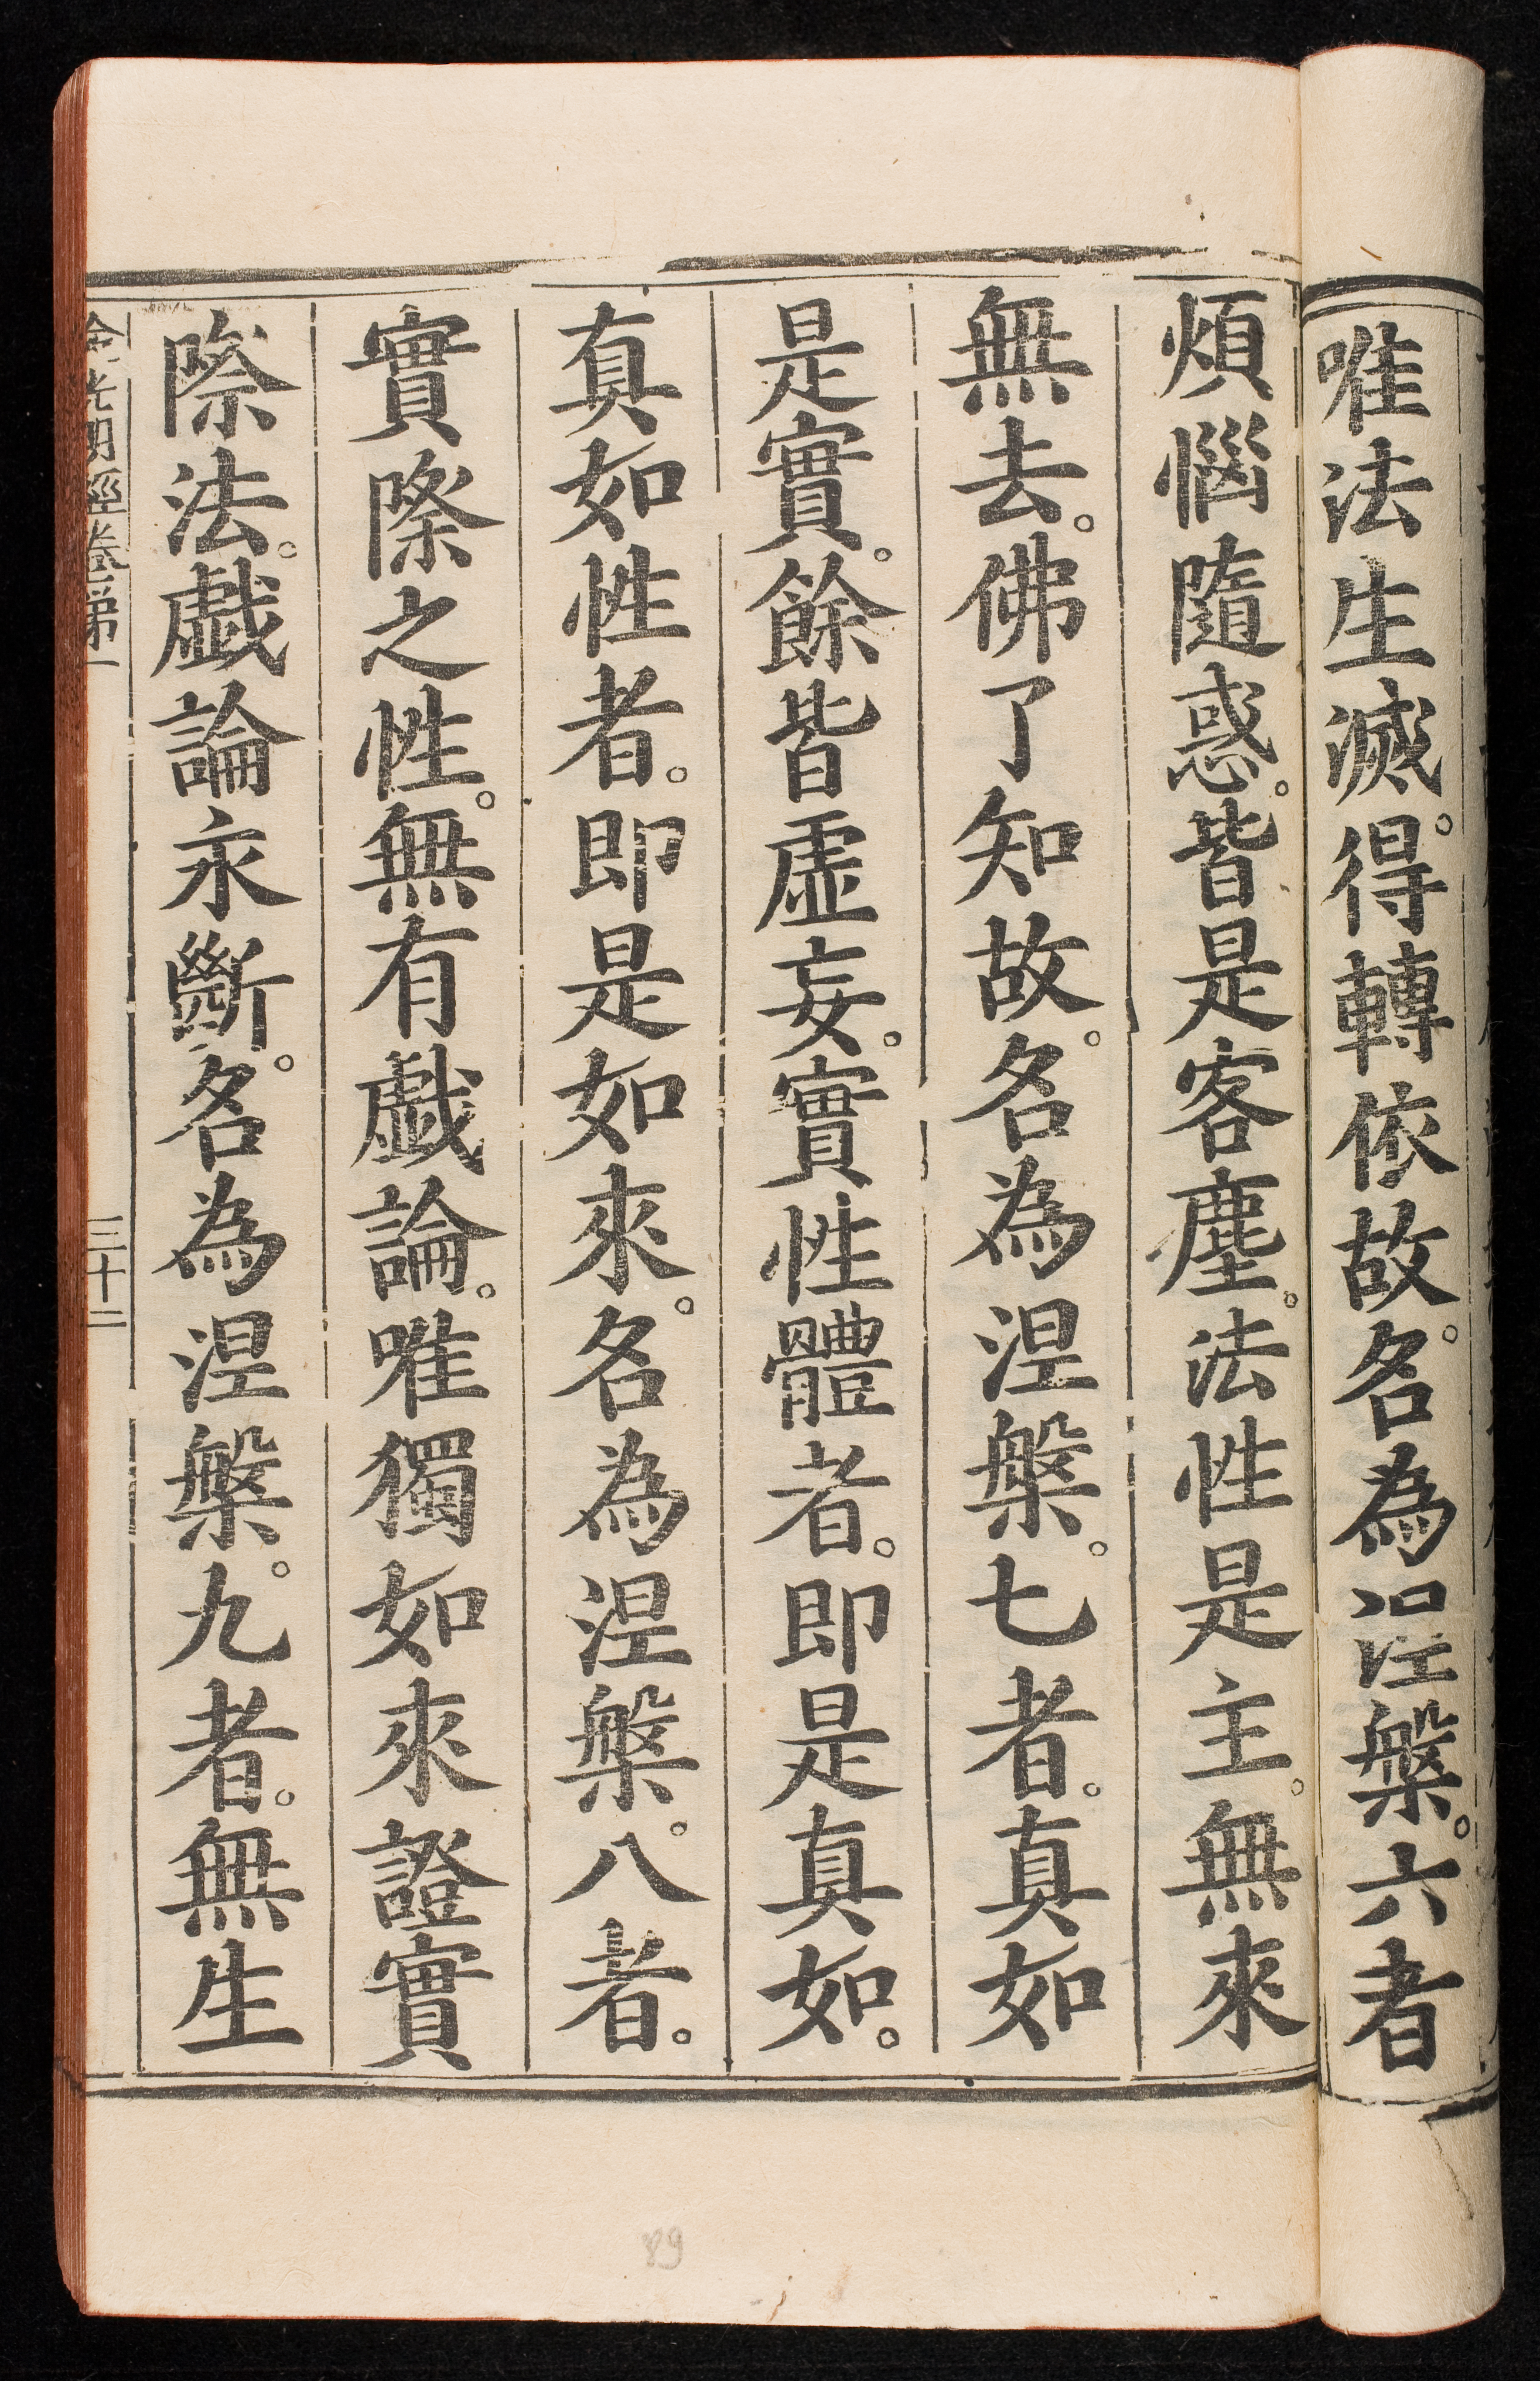 唯法生滅。得轉依故。名為涅槃。六者
煩惱隨惑。皆是客塵。法性是主。無來
無去。佛了知故。名為涅槃。七者。真如
是實。餘皆虛妄。實性體者。即是真如。
真如性者。即是如來。名為涅槃。八者。
實際之性。無有戲論。唯獨如來證實
際法。戲論永斷。名為涅槃。九者。無生
金光明經卷第一
三十二
89